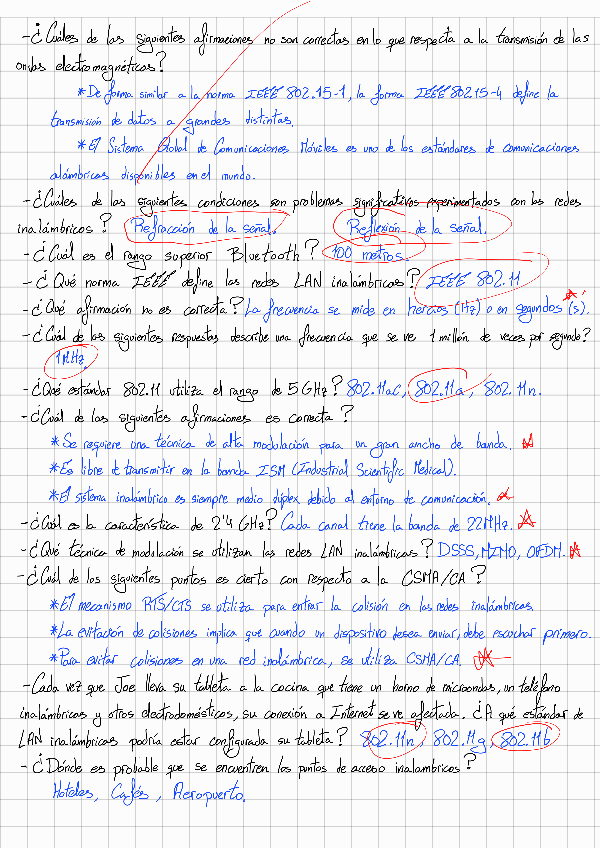 -¿Cuáles de las siguientes afirmaciones no son correctas en lo que respecta a la transmisión de las
ondas electromagnéticas?
*De forma similar a la norma IEEE 802.15-1, la forma IEEE 802.15-4 define la
transmisión de datos a grandes distintas.
*El Sistema Global de Comunicaciones Móviles es uno de los estándares de comunicaciones
alámbricas disponibles en el mundo.
-¿Cuáles de las siguientes condiciones son problemas significativos experimentados con las redes
inalámbricos? Refracción de la señal. Reflexión de la señal.
-¿Cuál es el rango superior Bluetooth? 100 metros.
-¿Qué norma IEEE define las redes LAN inalámbricos? IEEE 802.11
-¿Qué afirmación no es correcta? La frecuencia se mide en hercios (Hz) o en segundos (s).
-¿Cuál de las siguientes respuestas describe una frecuencia que se ve 1 millón de veces por segundo?
1MHz
-¿Qué estándar 802.11 utiliza el rango de 5GHz? 802.11ac, 802.11a, 802.11n.
-¿Cuál de las siguientes afirmaciones es correcta?
*Se requiere una técnica de alta modulación para un gran ancho de banda.
*Es libre de transmitir en la banda ISM (Industrial Scientific Medical).
*El sistema inalámbrico es siempre medio dúplex debido al entorno de comunicación.
-¿Cuál es la característica de 2'4 GHz? Cada canal tiene la banda de 22MHz.
-¿Qué técnica de modulación se utilizan las redes LAN inalámbricos? DSSS, MIMO, OFDM.
-¿Cuál de los siguientes puntos es cierto con respecto a la CSMA/CA?
*El mecanismo RTS/CTS se utiliza para entrar la colisión en las redes inalámbricas
*La evitación de colisiones implica que cuando un dispositivo desea enviar, debe escuchar primero.
*Para evitar colisiones en una red inalámbrica, se utiliza CSMA/CA.
-Cada vez que Joe lleva su tableta a la cocina que tiene un horno de microondas, un teléfono
inalámbricos y otros electrodomésticos, su conexión a Internet se ve afectada. ¿A qué estándar de
LAN inalámbricos podría estar configurada su tableta? 802.11n, 802.11g, 802.11b
-¿Dónde es probable que se encuentren los puntos de acceso inalambricos?
Hoteles, Cafés, Aeropuerto.